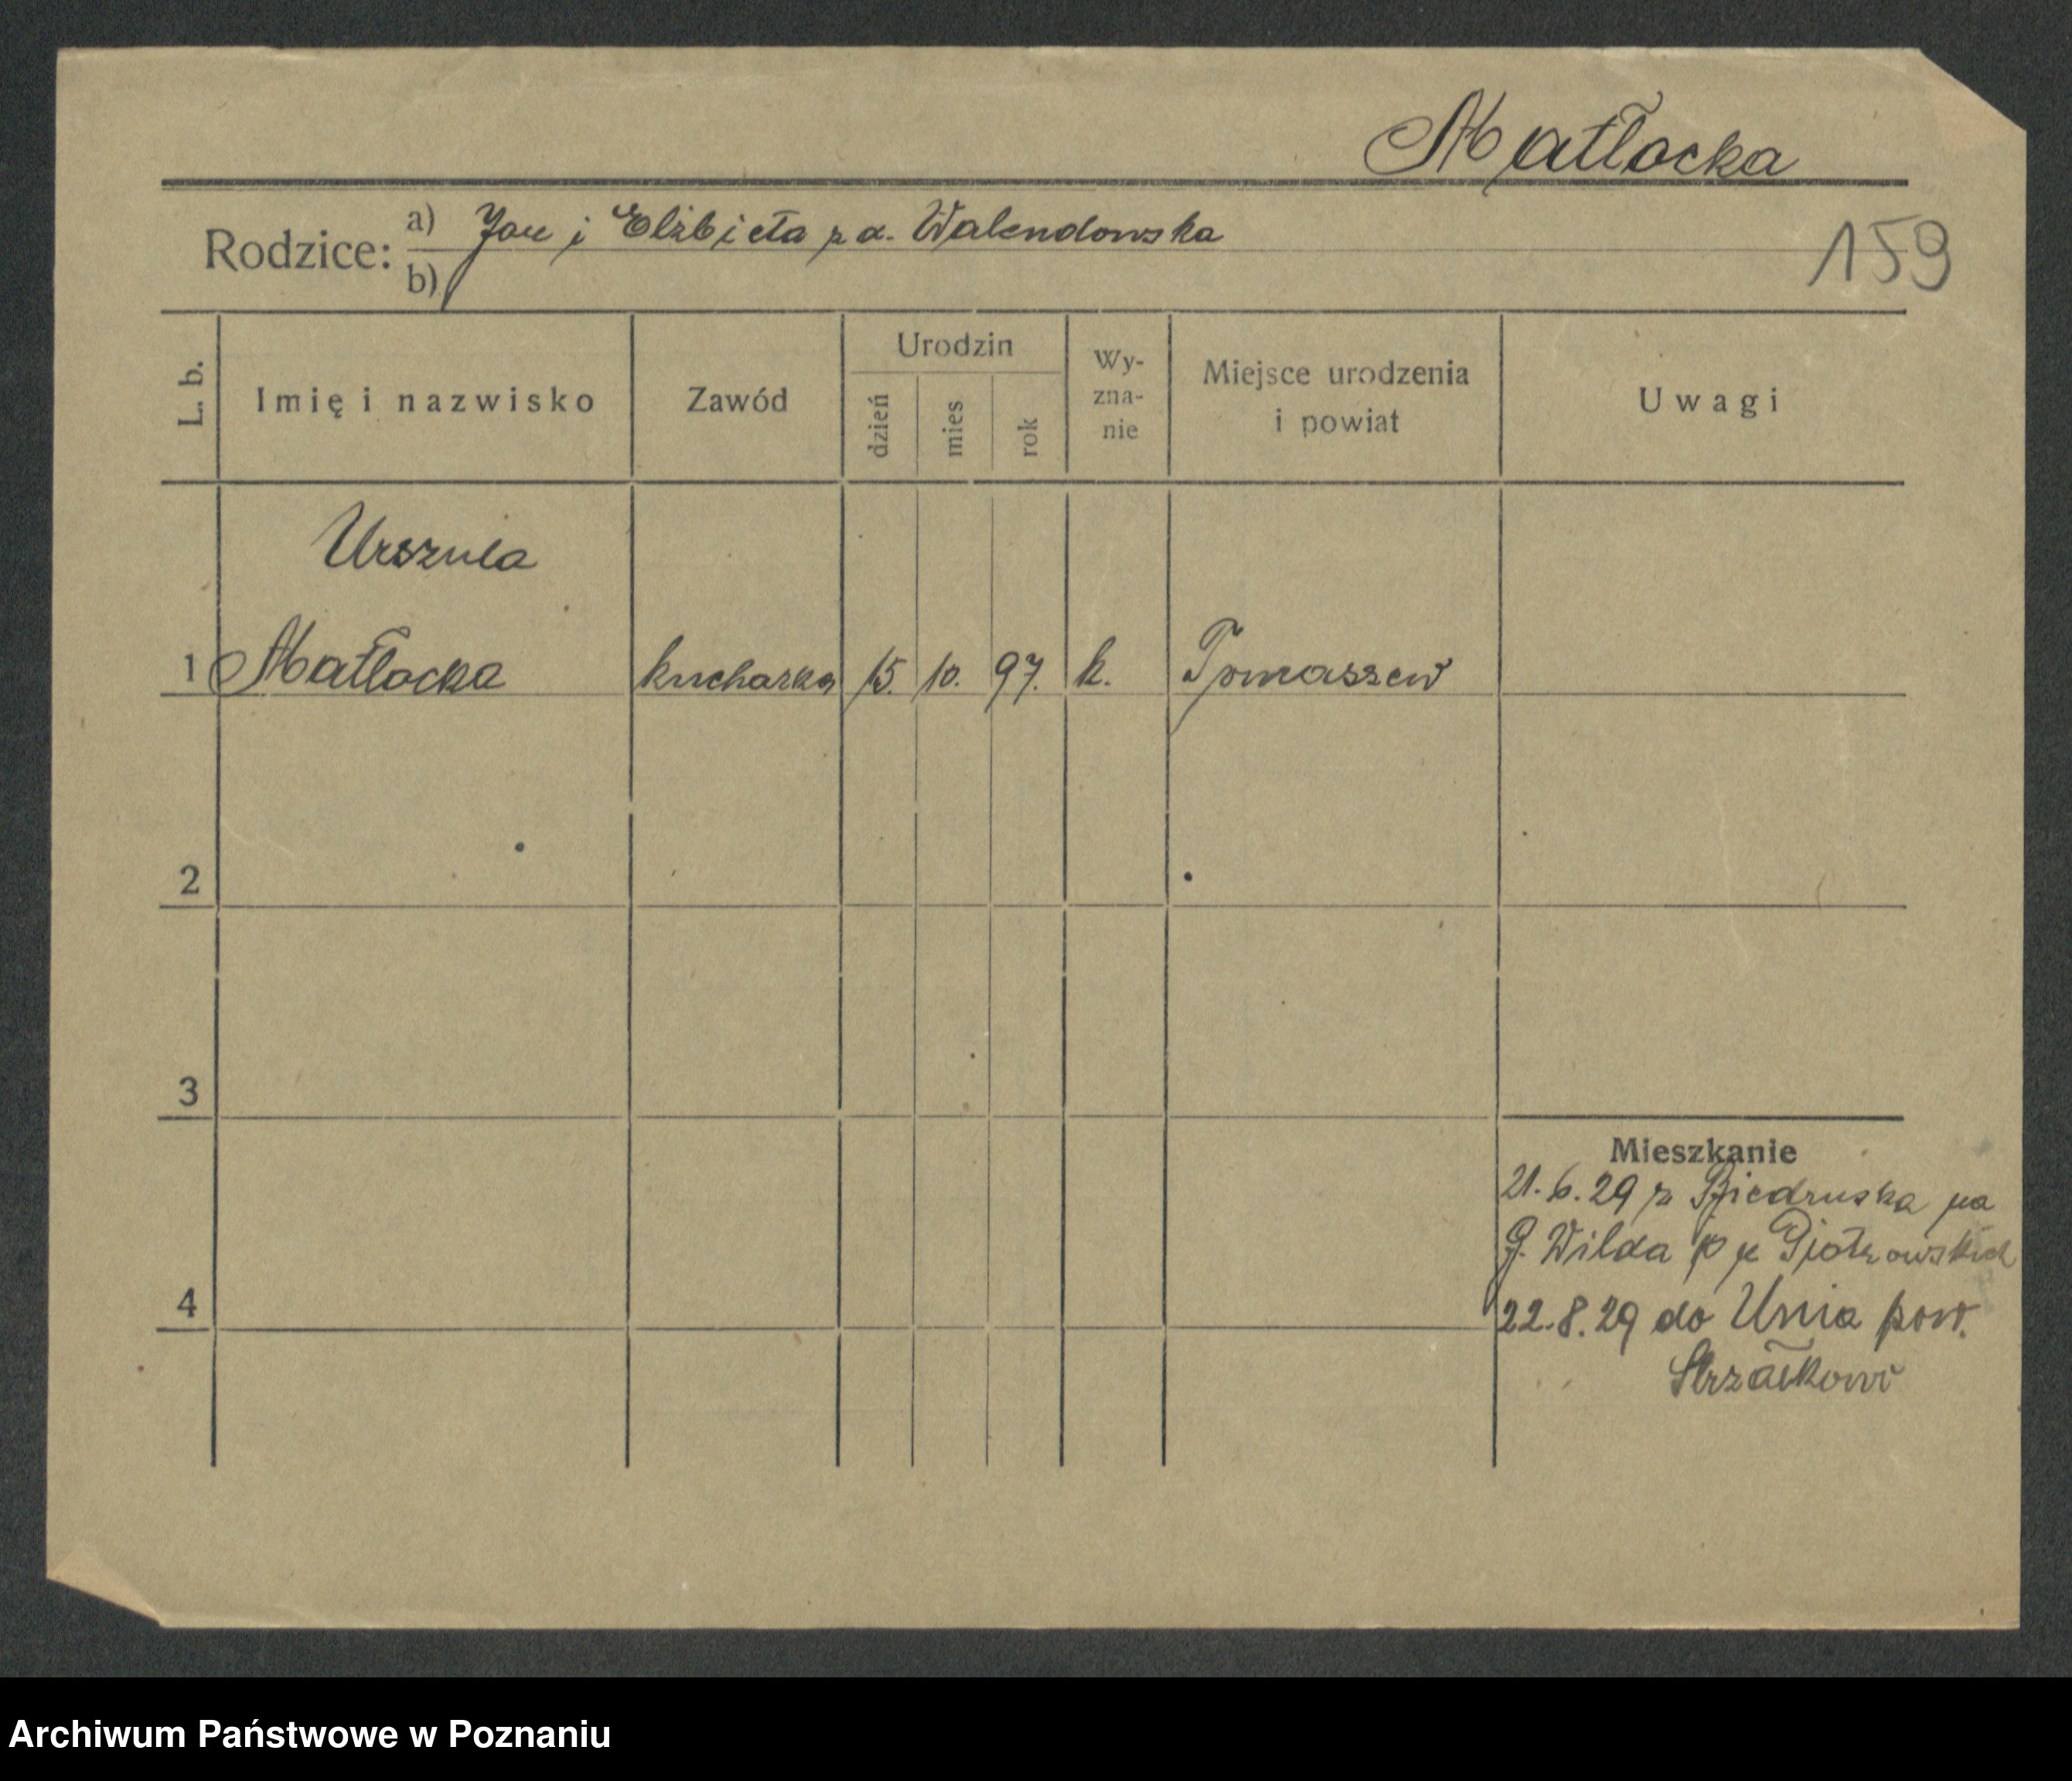 Matłocka
Rodzice: a) Jan i Elżbieta z d. Walendowska
b)
159
L. b.
Imię i nazwisko
Zawód
Urodzin
dzień
mies
rok
Wy-
zna-
nie
Miejsce urodzenia
i powiat
Uwagi
Urszula
1 Matłocka kucharka 15. 10. 97. k. Tomaszew
2
3
Mieszkanie
21.6.29 z Biedruska na
G. Wilda p Piotrowskich
4
22.8.29 do Unia pow.
Strzałkowo
Archiwum Państwowe w Poznaniu